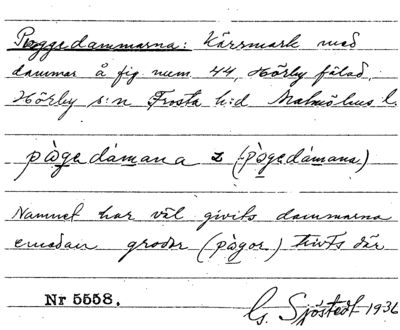 Poggedammarna: Kärrmark med
dammar å fig. num. 44, Hörby fälad,
Hörby s:n Frosta h:d Malmöhus l.
pògedámana z (pògedámana)
Namnet har väl givits dammarna
emedan grodor (pògor) trivts där
Nr 5558.
G. Sjöstedt 1936